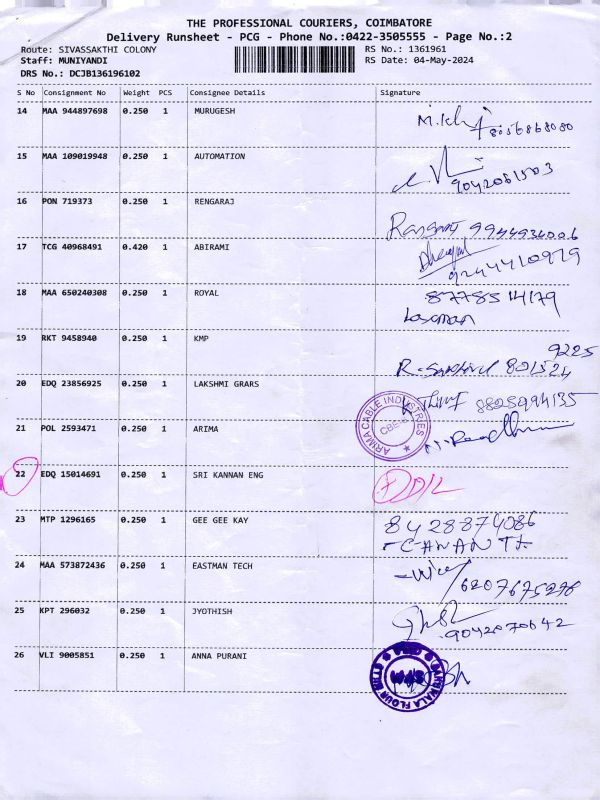 THE PROFESSIONAL COURIERS, COIMBATORE
Delivery Runsheet - PCG - Phone No.:0422-3505555 - Page No.:2
Route: SIVASSAKTHI COLONY RS No.: 1361961
Staff: MUNIYANDI RS Date: 04-May-2024
DRS No.: DCJB136196102
S No Consignment No Weight PCS Consignee Details Signature
14 MAA 944897698 0.250 1 MURUGESH
8056868080
15 MAA 109019948 0.250 1 AUTOMATION
9042061503
16 PON 719373 0.250 1 RENGARAJ
9944934006
17 TCG 40968491 0.420 1 ABIRAMI
9244410979
18 MAA 650240308 0.250 1 ROYAL
8778514179
19 RKT 9458940 0.250 1 KMP
9225
801524
20 EDQ 23856925 0.250 1 LAKSHMI GRARS
8825994135
21 POL 2593471 0.250 1 ARIMA
ARMA CABLE INDUSTRIES
CBE
22 EDQ 15014691 0.250 1 SRI KANNAN ENG
D/L
23 MTP 1296165 0.250 1 GEE GEE KAY
8428874086
24 MAA 573872436 0.250 1 EASTMAN TECH
6207675278
25 KPT 296032 0.250 1 JYOTHISH
9042070642
26 VLI 9005851 0.250 1 ANNA PURANI
FLOUR MILLS